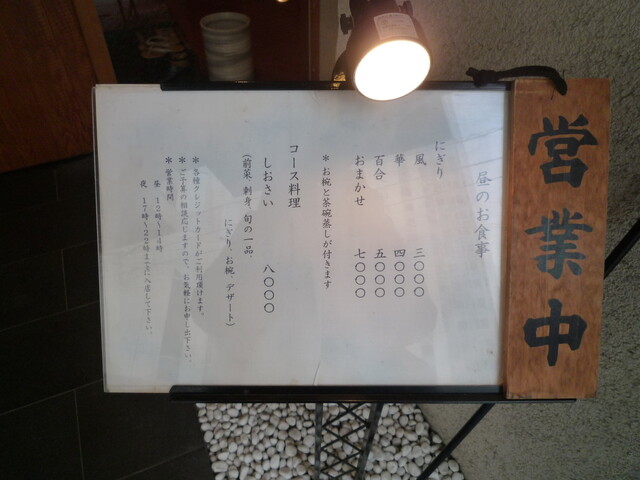 営業中
昼のお食事
にぎり
風 三〇〇〇
華 四〇〇〇
百合 五〇〇〇
おまかせ 七〇〇〇
＊お椀と茶碗蒸しが付きます
コース料理
しおさい 八〇〇〇
(前菜 刺身 旬の一品
にぎり、お椀 デザート)
＊各種クレジットカードがご利用頂けます。
＊ご予算の相談応じますので、お気軽にお申し出下さい。
＊営業時間
昼 １２時～１４時
夜 １７時～２２時までに入店して下さい。